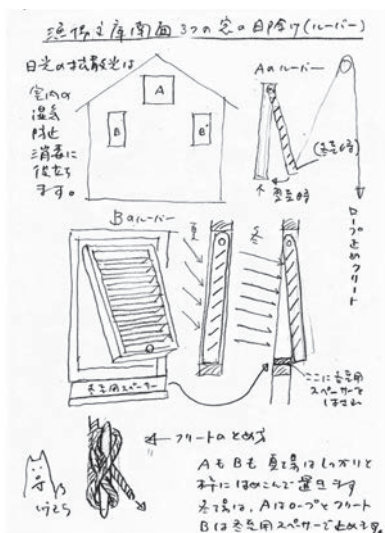 漁協文庫南面3つの窓の日除け(ルーバー)
日光の拡散光は
室内の
湿気
防止
消毒に
役立ち
ます。
A
B
B
Aのルーバー
(冬至時)
夏至時
ロープ止めクリート
Bのルーバー
夏
冬
冬至用スペーサー
ここに冬至用
スペーサーを
はさむ
クリートのとめ方
AもBも夏至はしっかりと
枠にはめこんで置きます
冬至は、Aはロープとクリート
Bは冬至用スペーサーで止めます。